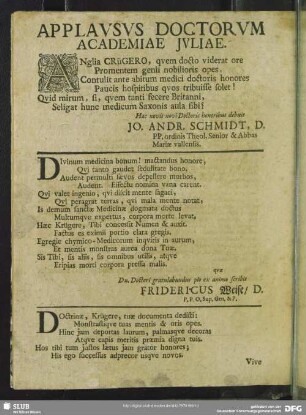 APPLAVSVS DOCTORVM
ACADEMIAE JVLIAE.
ANglia CRüGERO, qvem docto viderat ore
Promentem genii nobilioris opes.
Contulit ante abitum medici doctoris honores
Paucis hospitibus qvos tribuisse solet!
Qvid mirum, si, qvem tanti fecere Britanni,
Seligat hunc medicum Saxonis aula sibi!
JO. ANDR. SCHMIDT, D.
PP. ordinis Theol. Senior & Abbas
Mariæ vallensis.
Divinum medicina bonum! mactandus honore,
Qvi tanto gaudet sedulitate bono,
Audent. Effectu nomina vana carent.
Qvi valet ingenio, qvi discit mente sagaci,
Qvi peragrat terras, qvi mala mente notat;
Is demum sanctæ Medicinæ dogmata doctus
Mulcumqve expertus, corpora morte levat.
Hæc Krügere, Tibi concessit Numen & auxit.
Factus es eximii portio clara gregis.
Egregie chymico-Medicorum inqviris in aurum,
Et mentis monstras aurea dona Tuæ.
Sis Tibi, sis aliis, sis omnibus utilis, atqve
Eripias morti corpora pressa malis.
qva
Dn. Doctori gratulabundus pio ex animo scribit
FRIDERICUS Weise/ D.
Doctrinæ, Krügere, tuæ documenta dedisti:
Monstrastiqve tuas mentis & oris opes.
Hinc jam deportas laurum, palmasqve decoras
Atqve capis meritis præmia digna tuis.
Hos tibi tam justos lætus jam grator honores;
His ego successus adprecor usqve novos.
Vive
SLUB
DFG